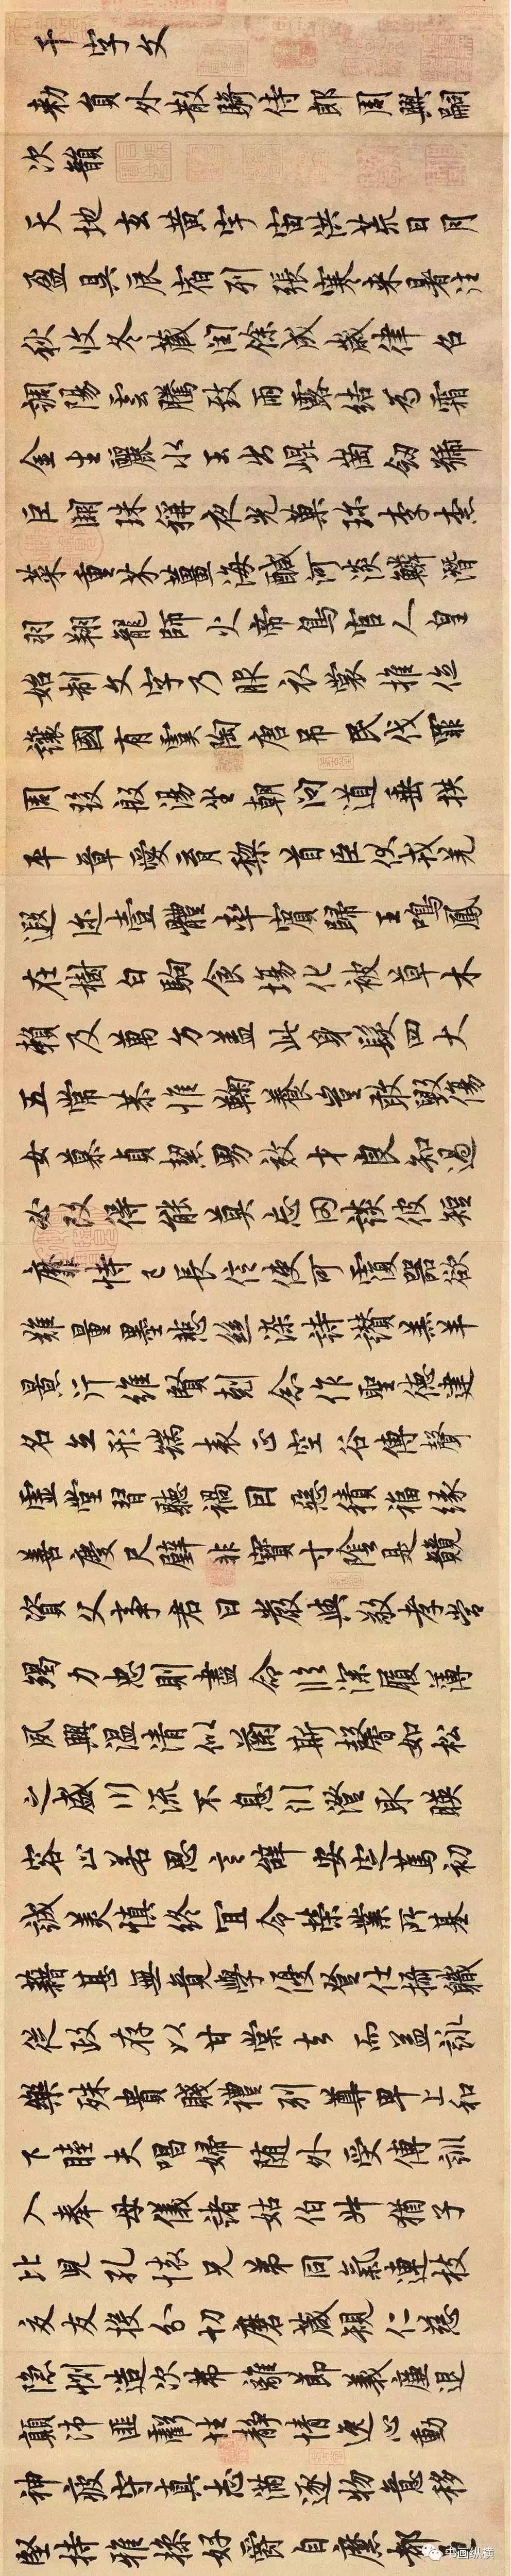 千字文
敕員外散騎侍郎周興嗣
次韻
天地玄黃宇宙洪荒日月
盈昃辰宿列張寒來暑往
秋收冬藏閏餘成歲律召
調陽雲騰致雨露結為霜
金生麗水玉出崑崗劍號
巨闕珠稱夜光菓珍李柰
菜重芥薑海鹹河淡鱗潛
羽翔龍師火帝鳥官人皇
始制文字乃服衣裳推位
讓國有虞陶唐吊民伐罪
周發殷湯坐朝問道垂拱
平章愛育黎首臣伏戎羌
遐邇壹體率賓歸王鳴鳳
在樹白駒食場化被草木
賴及萬方蓋此身髮四大
五常恭惟鞠養豈敢毀傷
女慕貞絜男效才良知過
必改得能莫忘罔談彼短
靡恃己長信使可覆器欲
難量墨悲絲染詩讚羔羊
景行維賢剋念作聖德建
名立形端表正空谷傳聲
虛堂習聽禍因惡積福緣
善慶尺璧非寶寸陰是競
資父事君曰嚴與敬孝當
竭力忠則盡命臨深履薄
夙興溫清似蘭斯馨如松
之盛川流不息淵澄取暎
容止若思言辭安定篤初
誠美慎終宜令榮業所基
藉甚無竟學優登仕攝職
從政存以甘棠去而益詠
樂殊貴賤禮別尊卑上和
下睦夫唱婦隨外受傅訓
入奉母儀諸姑伯叔猶子
比兒孔懷兄弟同氣連枝
交友投分切磨箴規仁慈
隱惻造次弗離節義廉退
顛沛匪虧性靜情逸心動
神疲守真志滿逐物意移
堅持雅操好爵自縻都邑
书画纵横